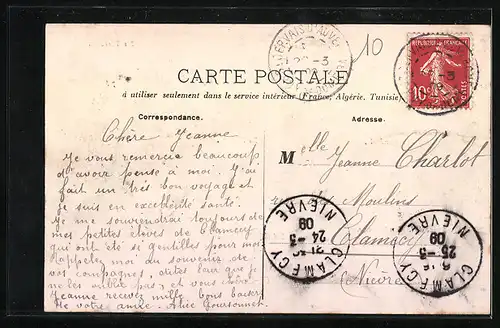 10
REPUBLIQUE FRANÇAISE
10c
POSTES
CARTE POSTALE
à utiliser seulement dans le service intérieur (France, Algérie, Tunisie).
Correspondance.
Adresse.
Chère Jeanne
Je vous remercie beaucoup
d'avoir pensé à moi. J'ai
fait un très bon voyage et
je suis en excellente santé.
Je me souviendrai toujours de
mes petites élèves de Clamecy
qui ont été si gentilles pour moi
Rappelez moi au souvenir de
vos compagnes, dites leur que je
ne les oublie pas, et vous chère
Jeanne recevez mille bons baisers
de votre amie. Alice
Melle Jeanne Charlot
Moulins
Clamecy
Nièvre
CLAMECY
24 -3
09
NIÈVRE
CLAMECY
25 -3
09
NIÈVRE